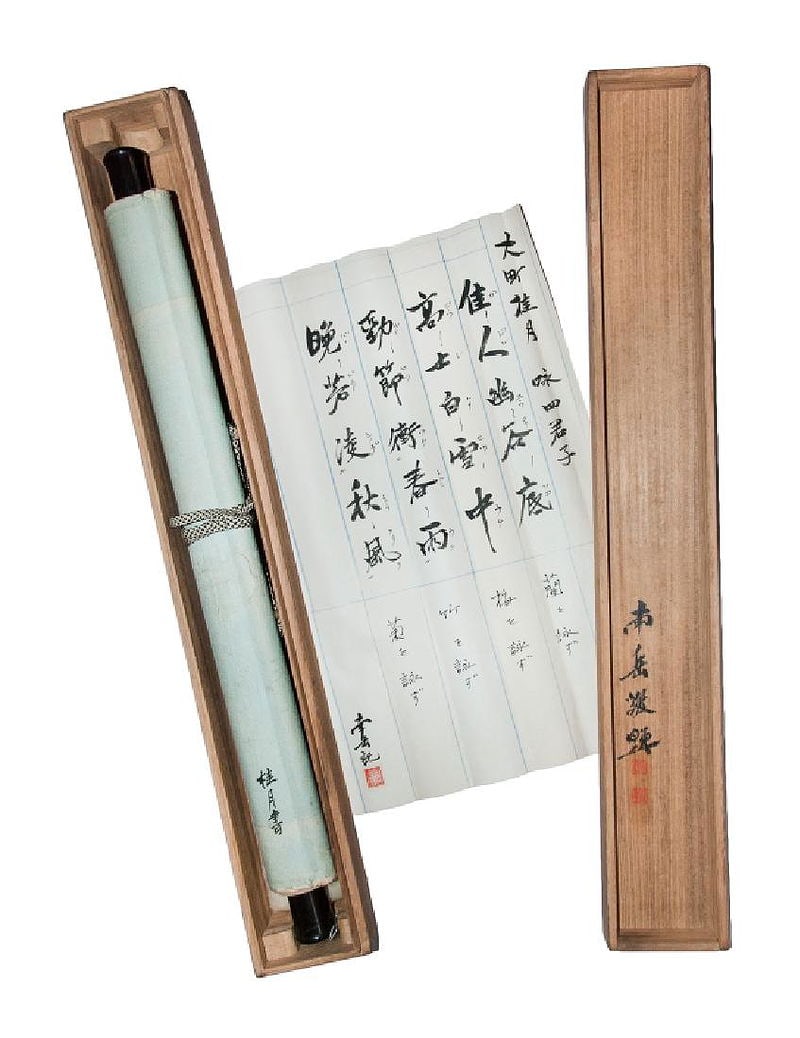 大町桂月 咏四君子
佳人幽谷底
蘭を詠ず
高士白雪中
梅を詠ず
勁節衝春雨
竹を詠ず
晩芳凌秋風
菊を詠ず
桂月書
南岳